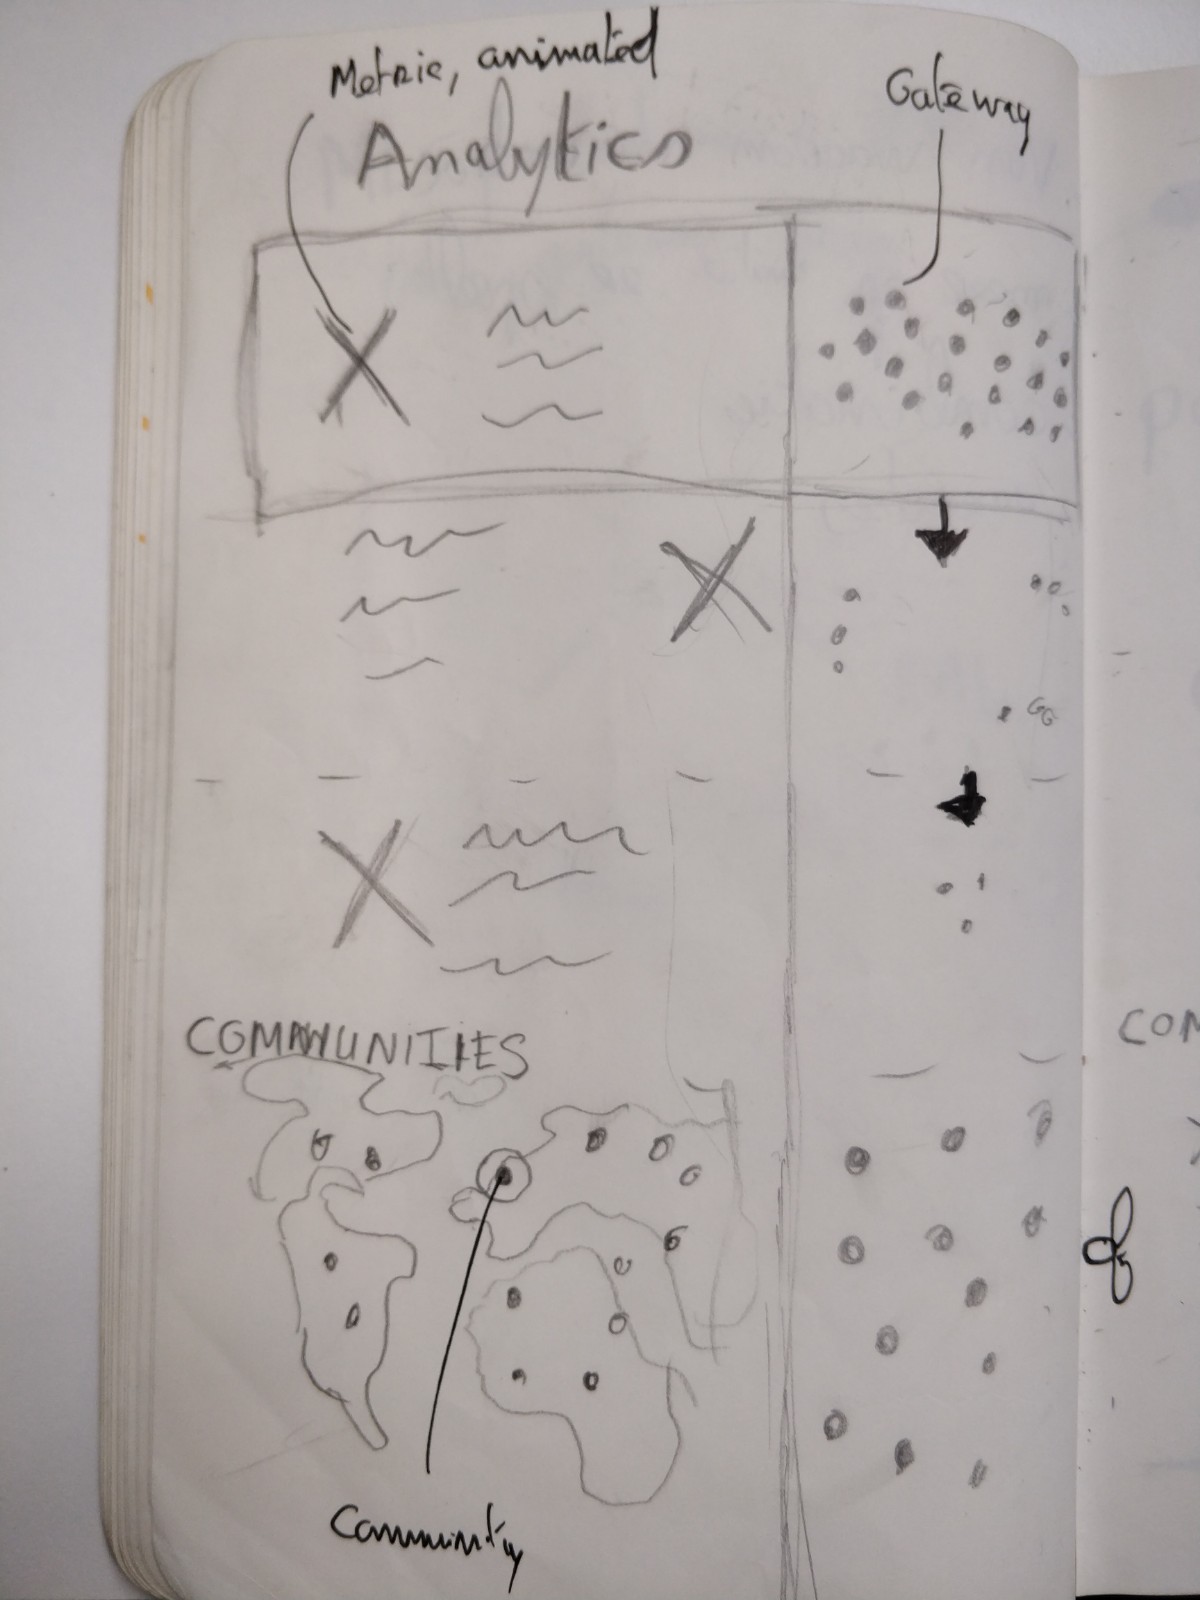 Metric, animated
Gateway
Analytics
COMMUNITIES
COM
Community